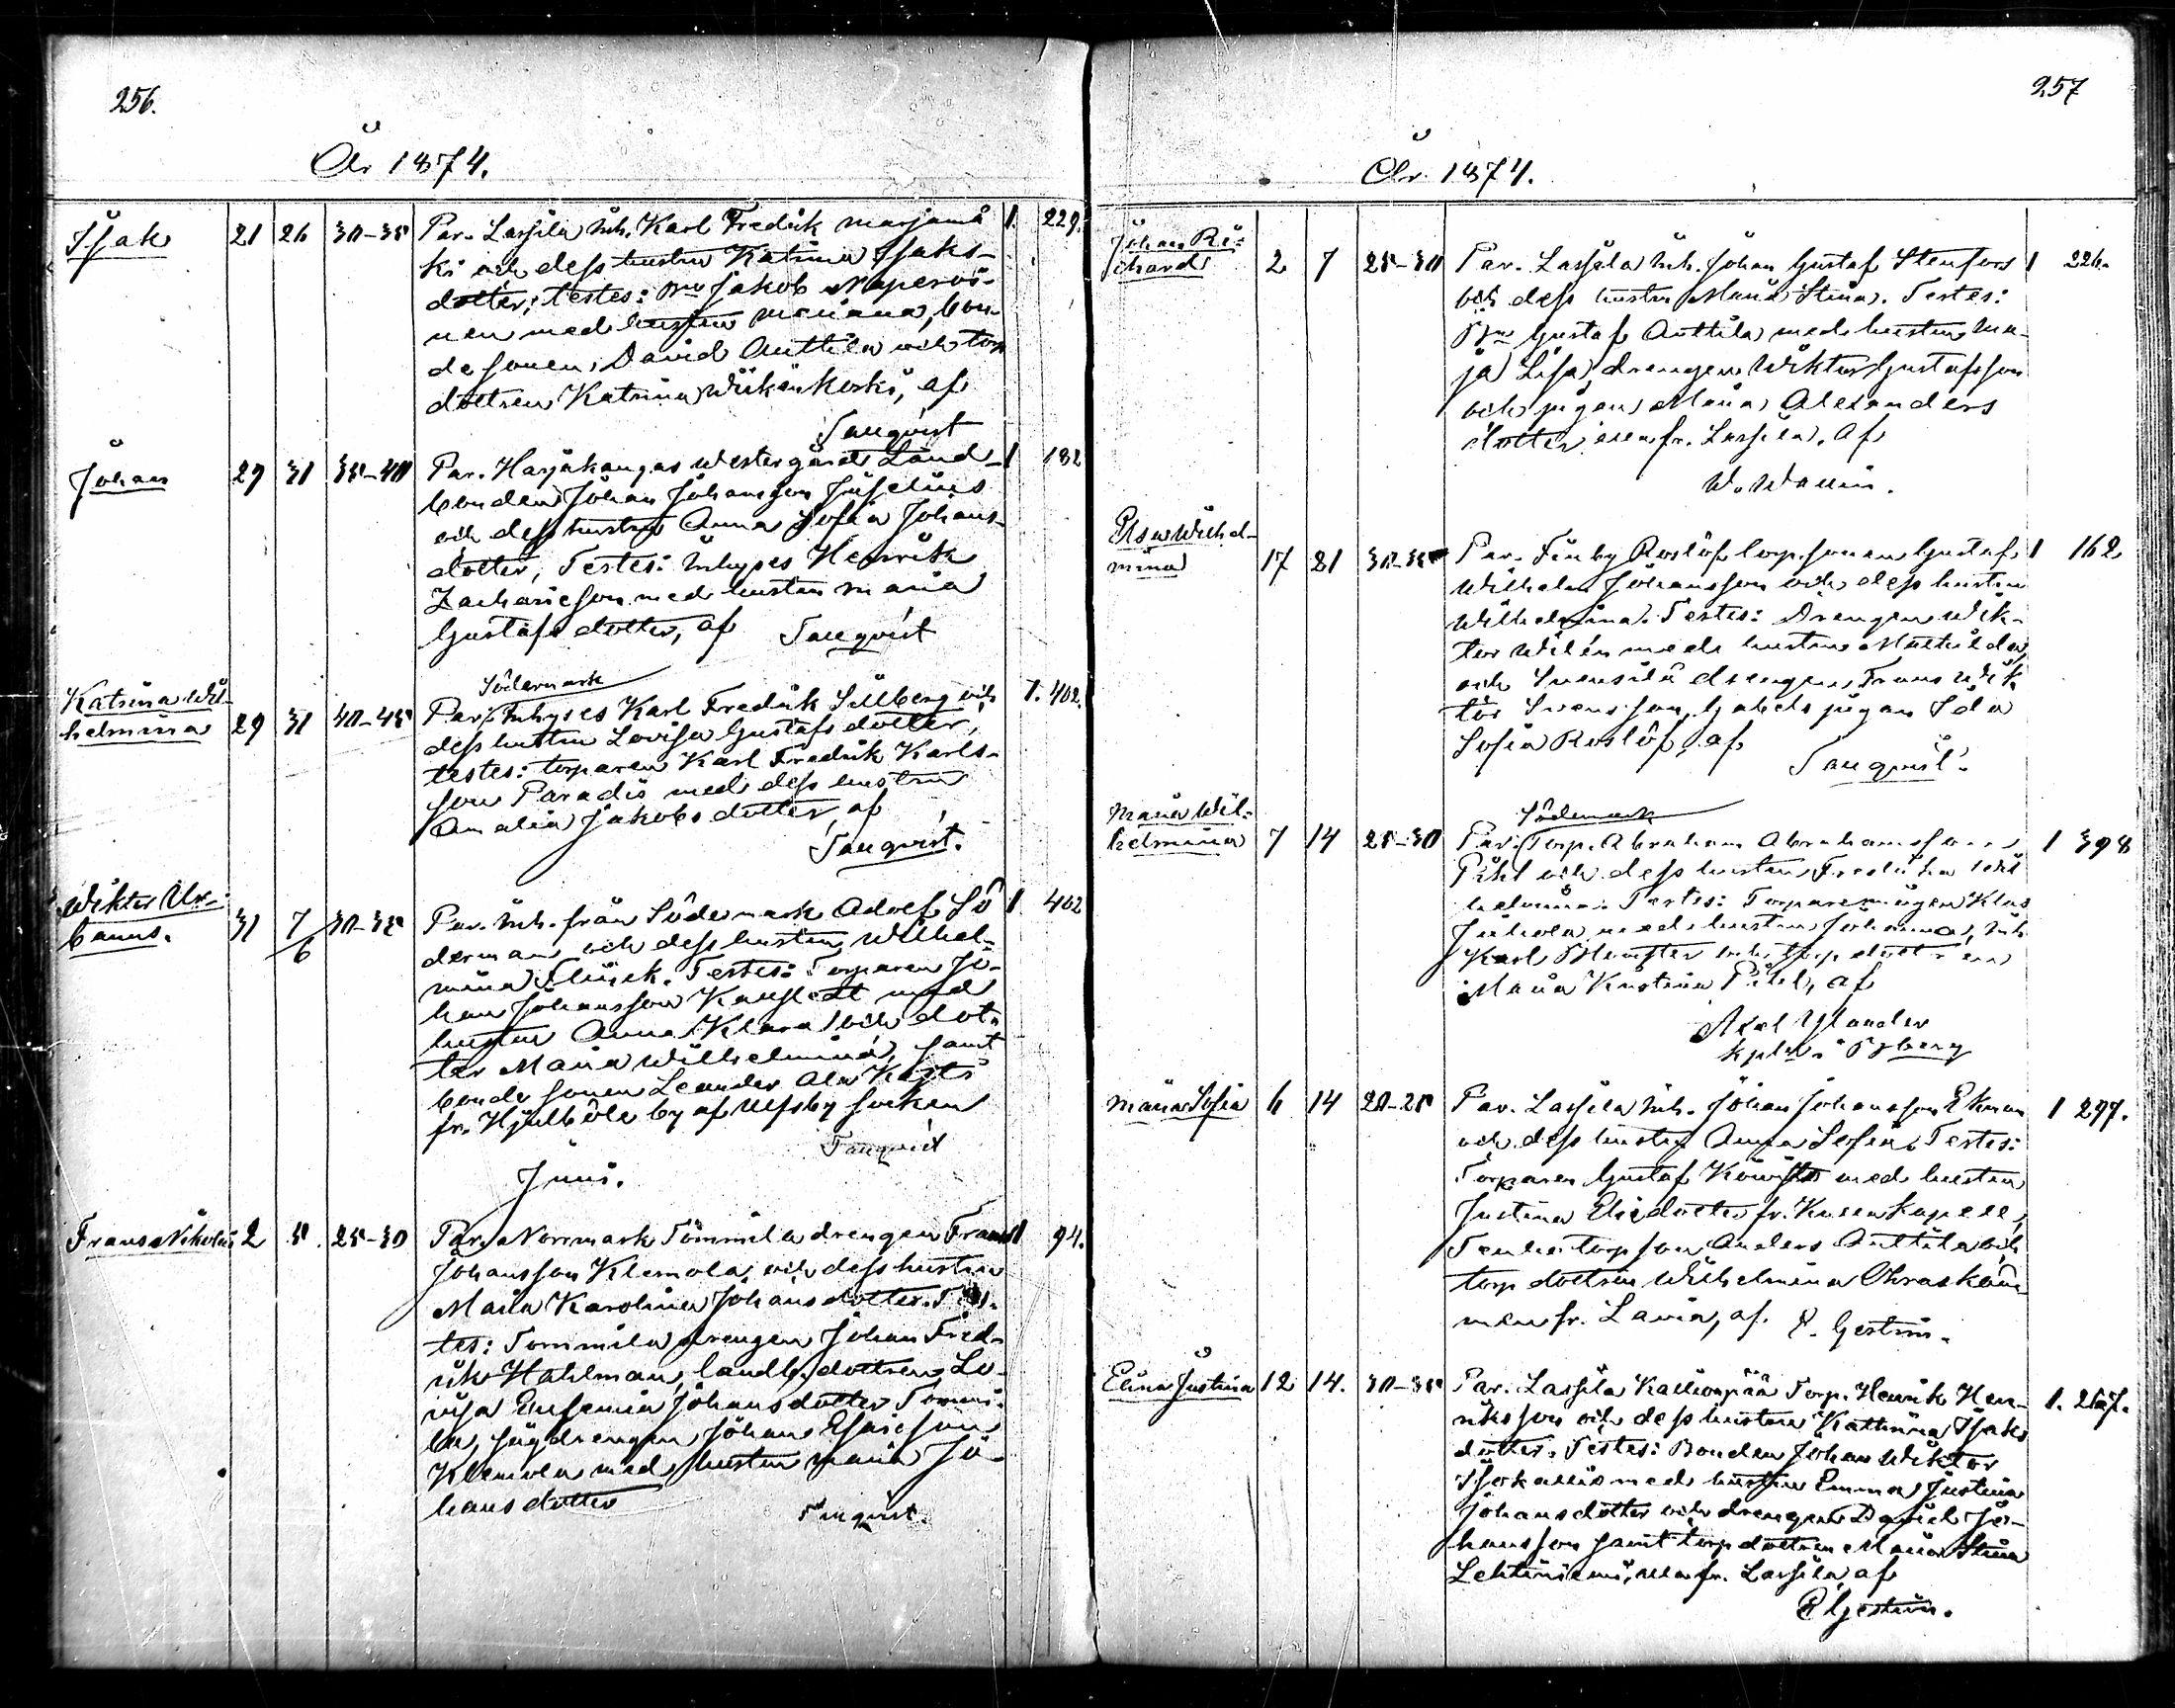 256.
År 1874.
Isak 21 26 30-35 Par. Lassila inh. Karl Fredrik Marjamä 1. 229.
ki och dess hustru Katrina Isaks-
dotter; testes: Bn Jakob
nen med hustru Mariana, bon-
desonen David Anttila och torp
dottren Katrina af
Tanqvist
Johan 29 31 35-40 Par. Harjakangas Westergård Land- 1 182
bonden Johan Johansson Juselius
och dess hustru Anna Sofia Johans-
dotter, Testes: Inhyses Henrik
Zachariesson med hustru Maria
Gustafsdotter, af Tanqvist
Södermark
Katrina Wil- 29 31 40-45 Par. Inhyses Karl Fredrik Sillberg och 1. 402.
helmina dess hustru Lovisa Gustafsdotter,
testes: torparen Karl Fredrik Karls-
son Paradis med dess hustru
Amalia Jakobsdotter, af
Tanqvist.
Wiktor Ur- 31 7/6 30-35 Par. inh. från Södermark Adolf Sö 1. 402
banus. derman och dess hustru Wilhel-
mina Flinck. Testes: Torparen Jo-
han Johansson med
hustru Anna Klara och dot-
ter Maria Wilhelmina, samt
bonde sonen Leander Ala
fr. Hjulböle by af Ulfsby socken
Tanqvist
Juni.
Frans Nikolai 2 5 25-30 Par. Norrmark Tommila drengen Frans 1 94.
Johansson Klemola och dess hustru
Maria Karolina Johansdotter. Tes-
tes: Tommila drengen Johan Fred-
rik Hahlman, landb. dottren Lo-
visa Eufemia Johansdotter Tommi-
la, sågdrengen Johan Esaiesson
Klemola med hustru Maria Jo-
hansdotter
Tanqvist.
257
År 1874.
Johan Ri-
chard 2 7 25-30 Par. Lassila inh. Johan Gustaf Stenfors 1 226.
och dess hustru Maria Stina. Testes:
Bn Gustaf Anttila med hustru Ma-
ja Lisa, drengen Wiktor Gustafsson
och pigan Maria Alexanders
dotter alla fr. Lassila. Af
W. Wallin.
Elsa Wilhel-
mina 17 21 30-35 Par. Finby Roslöf torp. sonen Gustaf 1 162
Wilhelm Johansson och dess hustru
Wilhelmina. Testes: Drengen Wik-
tor Wilén med hustru Mathilda
och drengen Frans Wik
tor Svensson, pigan Ida
Sofia Roslöf, af
Tanqvist.
Södermark
Maria Wil-
helmina 7 14 25-30 Par. Torp. Abraham Abrahamsson 1 398
Pihl och dess hustru Fredrika Wil
helmina. Testes: Torparemågen Klas
Juhola med hustru Johanna, inh
Karl Blomster och torp dottren
Maria Kristina Pihl, af
Axel Ylander
kpln i Björberg
Maria Sofia 6 14 20-25 Par. Lassila inh. Johan Johansson Ekman 1 297.
och dess hustru Anna Sofia. Testes:
Torparen Gustaf Koivisto med hustru
Justina Eliedotter fr. Kullaa kapell,
torpson Anders Anttila och
torp dottren Wilhelmina
men fr. Lavia, af. E. Geström.
Elina Justina 12 14. 30-35 Par. Lassila Kallionpää Torp. Henrik Hen- 1. 267.
riksson och dess hustru Kathrina Isaks
dotter. Testes: Bonden Johan Wiktor
Isokallio med hustru Emma Justina
Johansdotter och drengen David Jo-
hansson samt torp dottren Maria Stina
Lehtiniemi, alla fr. Lassila, af
E Geström.